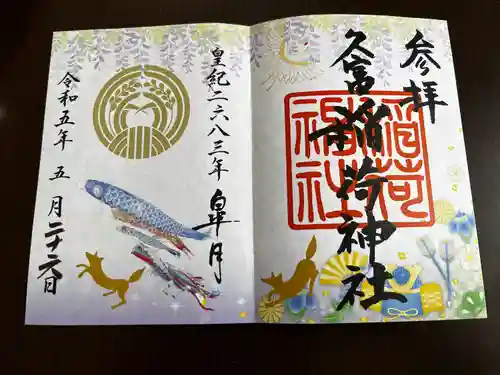 参拝
久富稲荷神社
稲荷神社
皇紀二六八三年 皐月
令和五年 五月二十六日